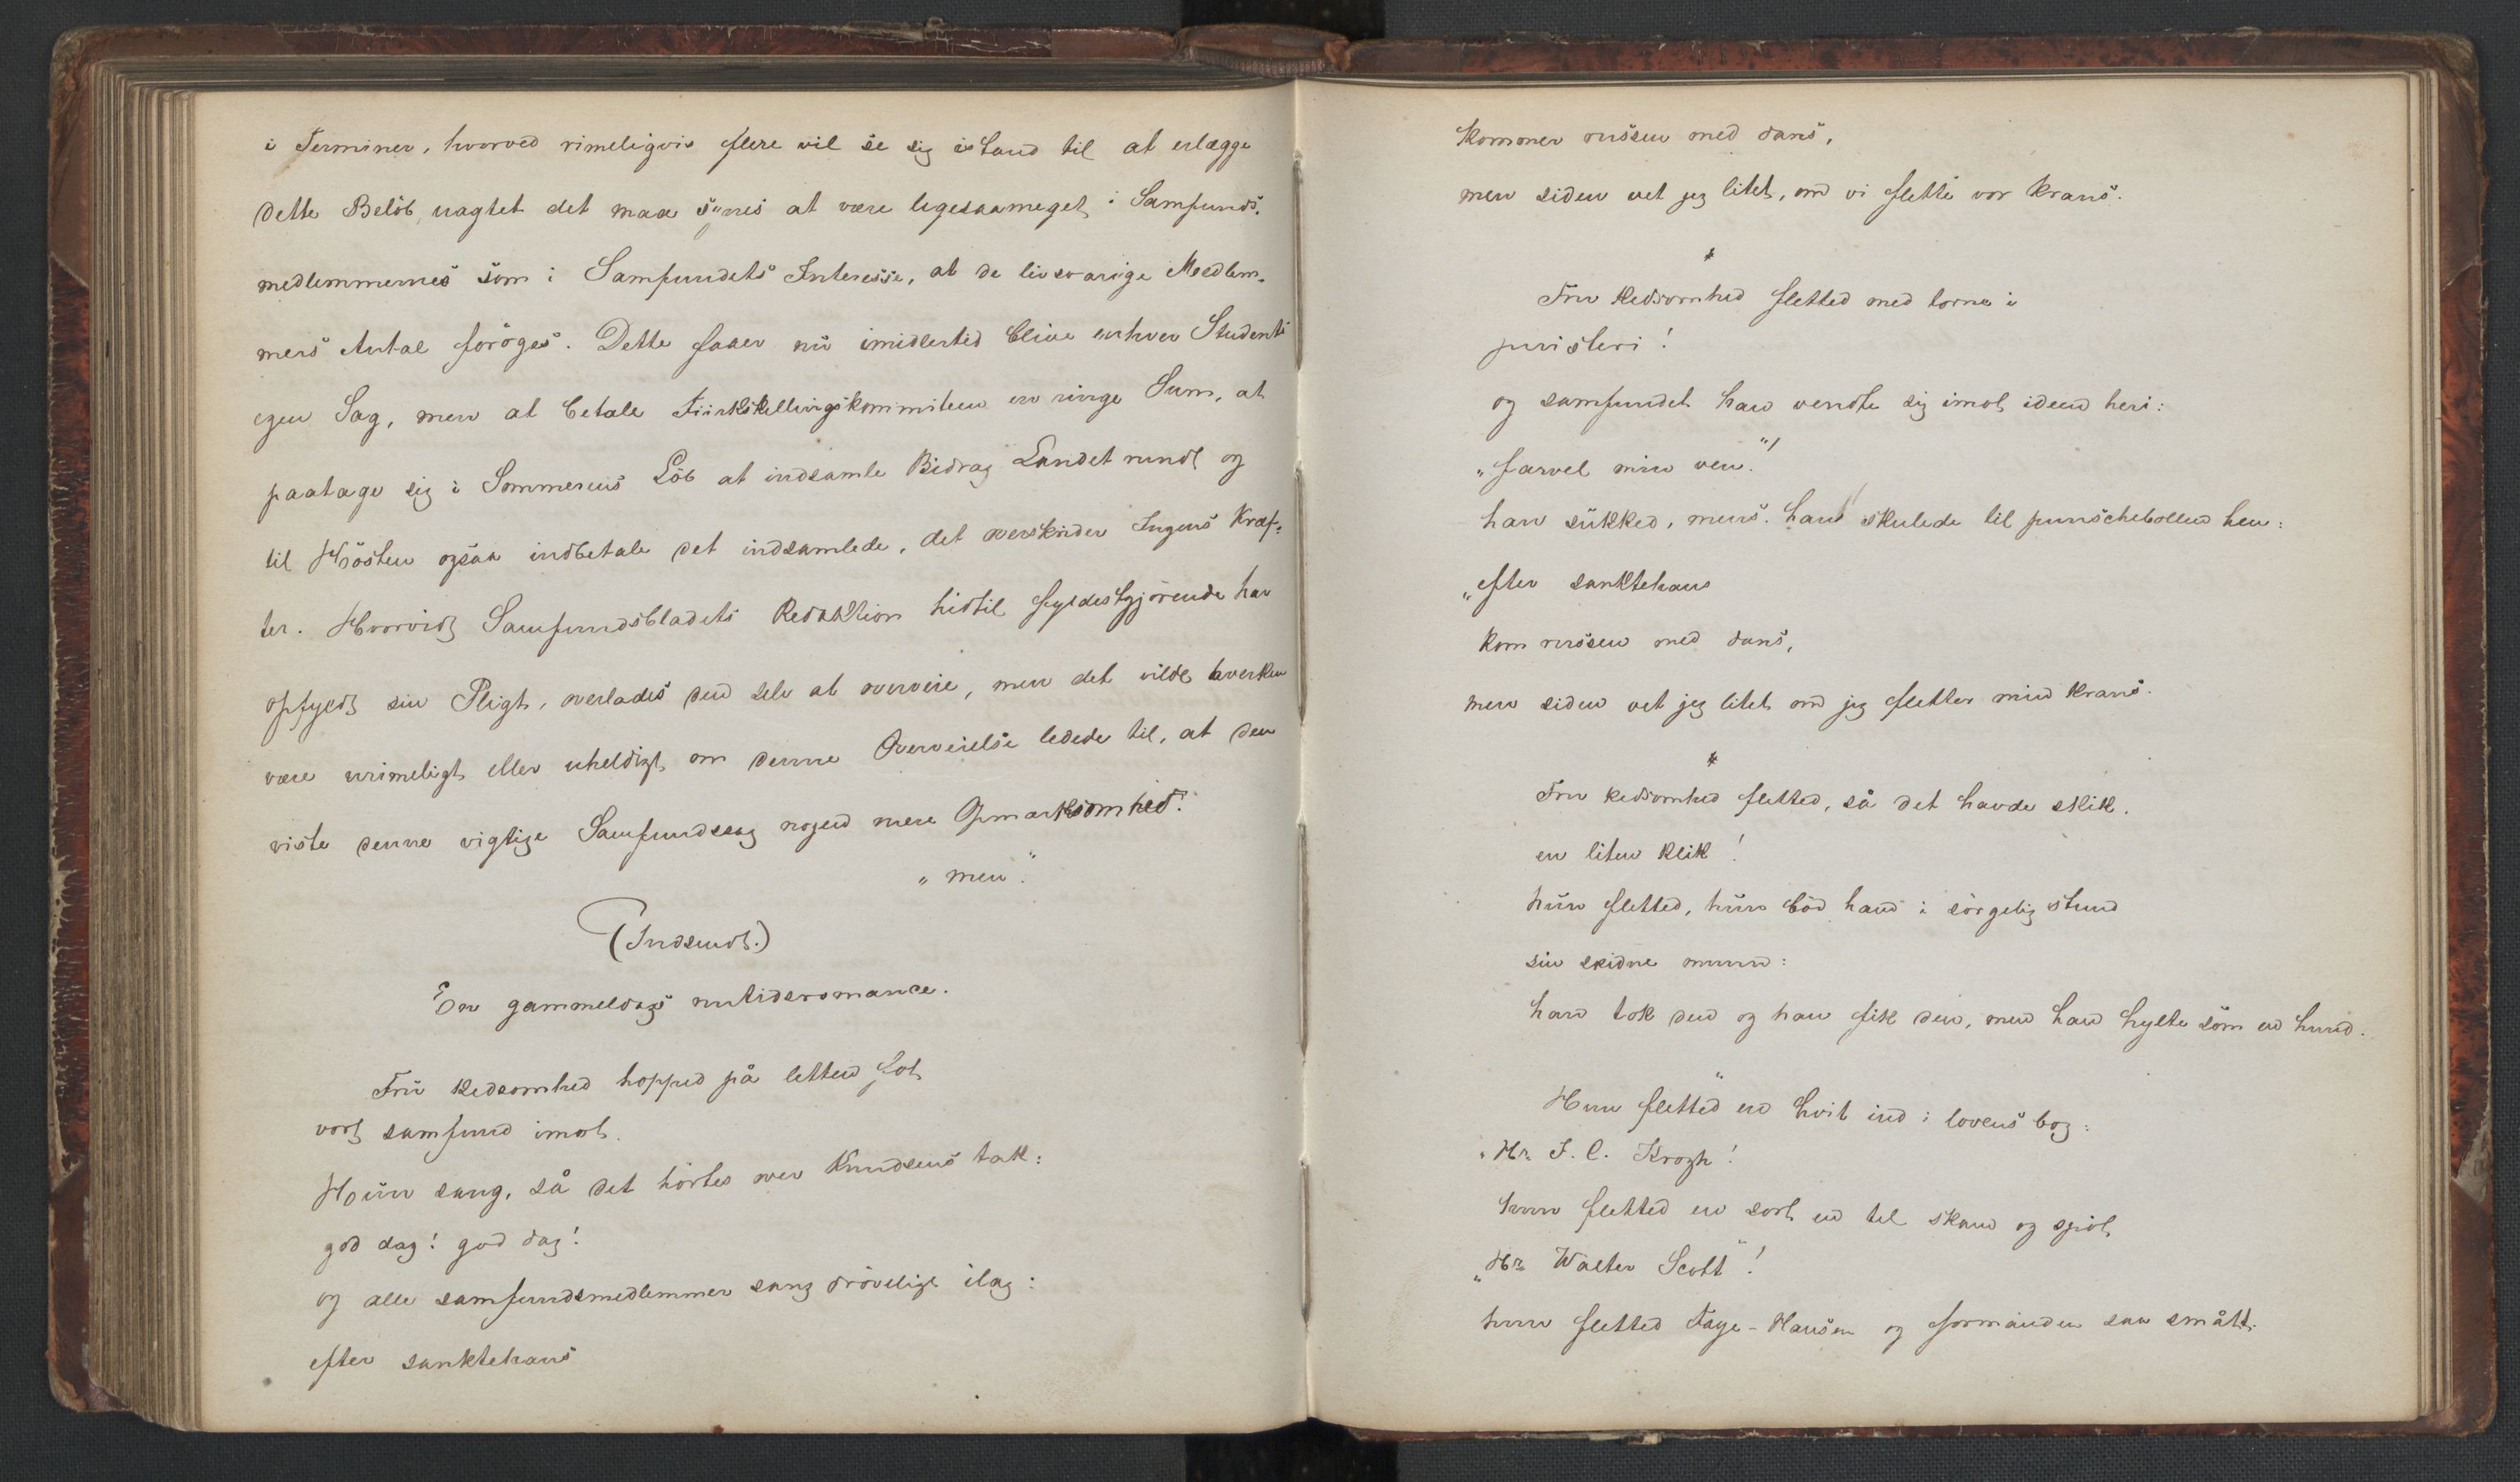 i Terminer, hvorved rimeligvis flere vil se sig istand til at erlægge
dette Beløb, uagtet det maa synes at være ligesaameget i Samfunds-
medlemmernes som i Samfundets Interesse, at de livsvarige Medlem-
mers Antal forøges. Dette faaer nu imidlertid blive enhver Students
egen Sag, men at betale Fiirskillingskommiteen en ringe Sum, at
paatage sig i Sommerens Løb at indsamle Bidrag Landet rundt og
til Høsten ogsaa indbetale det indsamlede, det overskrider Ingens Kræf-
ter. Hvorvidt Samfundsbladets Redaktion hidtil fyldestgjørende har
opfyldt sin Pligt, overlades den selv at overveie, men det vilde hverken
være urimeligt eller uheldigt om denne Overveielse ledede til, at den
viste denne vigtige Samfundssag nogen mere Opmærksomhed.
"men".
(Indsendt.)
En gammeldags nutidsromance.
Fru kedsomhed hopped på letten fot
vort samfund imot.
Hun sang, så det hørtes over Knudsens tak:
god dag! god dag!
og alle samfundsmedlemmer sang drøvelige ilag:
efter sanktehans
kommer russen med dans,
men siden vet jeg litet, om vi flette vor krans.
*
Fru kedsomhed fletted med torne i
puristeri!
og samfundet han vendte sig imot ideen heri:
"farvel min ven!"
han sukked, mens han skulede til punschebollen hen:
"efter sanktehans
kom russen med dans,
men siden vet jeg litet om jeg fletter min krans.
*
Fru kedsomhed fletted, så det havde skik.
en liten klik!
hun fletted, hun bød ham i sørgelig stund
sin skidne mund:
han tok den og han fik den, men han hylte som en hund.
"
Hun fletted en hvit ind i lovens bog:
"Hr. J. C. Krogh!
hun fletted en sort en til skam og spot,
"Hr. Walter Scott"!
hun fletted Faye-Hansen og formanden saa smått.